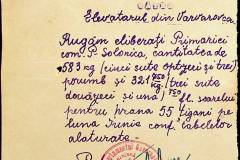 Elevatorul din Varvarovca
Rugăm eliberați Primăriei
com. P. Solonica, cantitatea de
583 kg (cinci sute optzeci și trei)
porumb și 321 750/000 trei sute
douăzeci și una 750/000 fl. soarelui
pentru hrana 55 țigani pe
luna Iunie conf. tabelelor
alăturate.